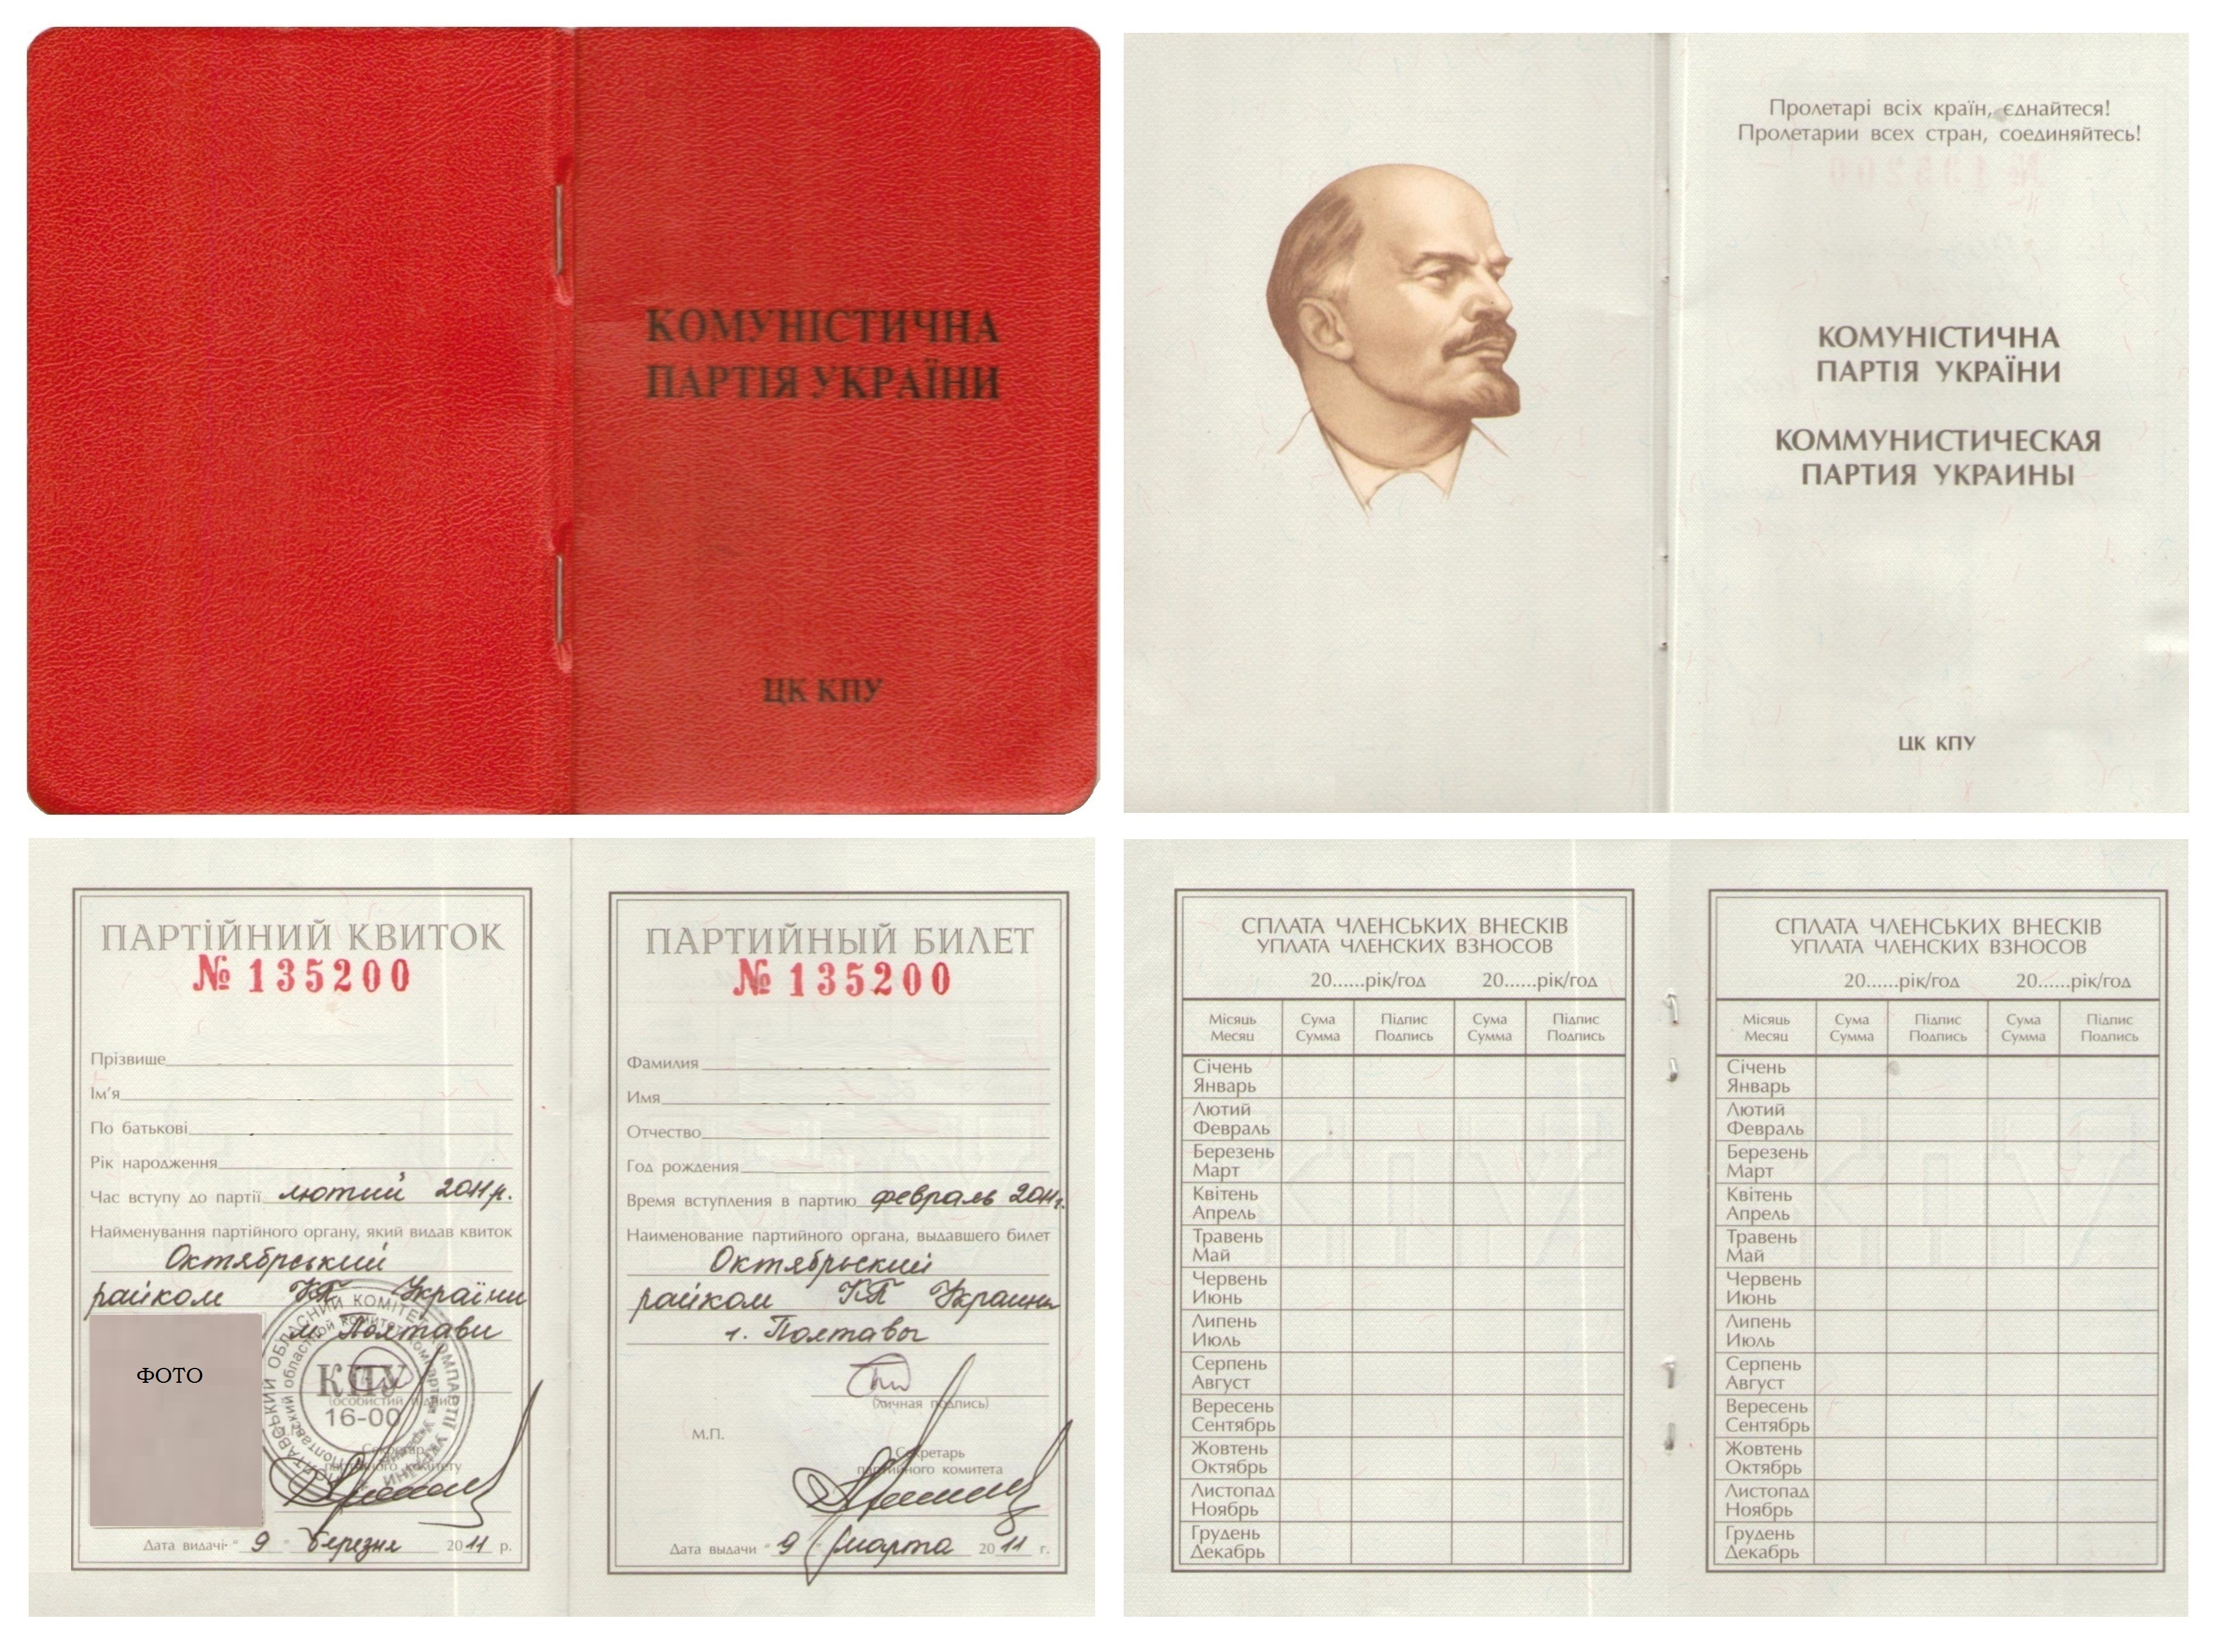 КОМУНІСТИЧНА
ПАРТІЯ УКРАЇНИ
ЦК КПУ
Пролетарі всіх країн, єднайтеся!
Пролетарии всех стран, соединяйтесь!
КОМУНІСТИЧНА
ПАРТІЯ УКРАЇНИ
КОММУНИСТИЧЕСКАЯ
ПАРТИЯ УКРАИНЫ
ЦК КПУ
ПАРТІЙНИЙ КВИТОК
№ 135200
Прізвище
Ім'я
По батькові
Рік народження
Час вступу до партії лютий 2011 р.
Найменування партійного органу, який видав квиток
Октябрський
райком КП України
м. Полтави
ФОТО
КПУ
16-00
(особистий підпис)
Секретар
партійного комітету
Дата видачі " 9 " березня 2011 р.
ПАРТИЙНЫЙ БИЛЕТ
№ 135200
Фамилия
Имя
Отчество
Год рождения
Время вступления в партию февраль 2011 г.
Наименование партийного органа, выдавшего билет
Октябрьский
райком КП Украины
г. Полтавы
(личная подпись)
М.П.
Секретарь
партийного комитета
Дата выдачи " 9 " марта 2011 г.
СПЛАТА ЧЛЕНСЬКИХ ВНЕСКІВ
УПЛАТА ЧЛЕНСКИХ ВЗНОСОВ
20......рік/год 20......рік/год
Місяць Сума Підпис Сума Підпис
Месяц Сумма Подпись Сумма Подпись
Січень
Январь
Лютий
Февраль
Березень
Март
Квітень
Апрель
Травень
Май
Червень
Июнь
Липень
Июль
Серпень
Август
Вересень
Сентябрь
Жовтень
Октябрь
Листопад
Ноябрь
Грудень
Декабрь
СПЛАТА ЧЛЕНСЬКИХ ВНЕСКІВ
УПЛАТА ЧЛЕНСКИХ ВЗНОСОВ
20......рік/год 20......рік/год
Місяць Сума Підпис Сума Підпис
Месяц Сумма Подпись Сумма Подпись
Січень
Январь
Лютий
Февраль
Березень
Март
Квітень
Апрель
Травень
Май
Червень
Июнь
Липень
Июль
Серпень
Август
Вересень
Сентябрь
Жовтень
Октябрь
Листопад
Ноябрь
Грудень
Декабрь